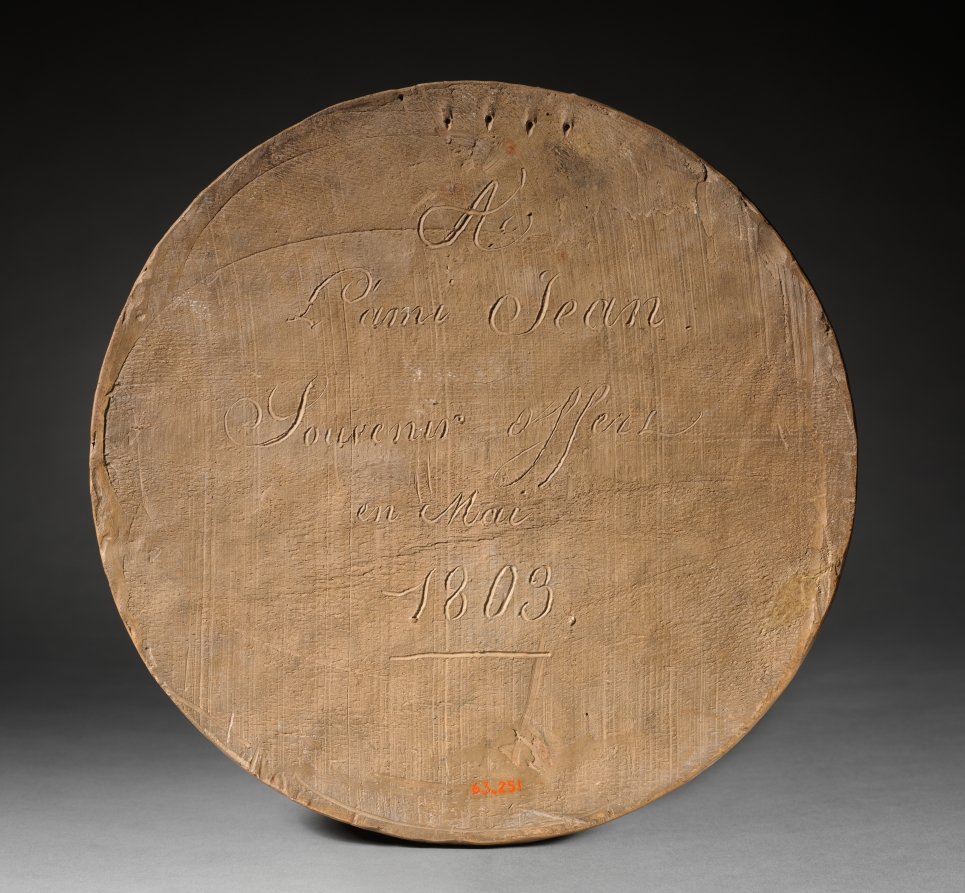 A
L'ami Jean
Souvenir offert
en Mai
1803.
63.251